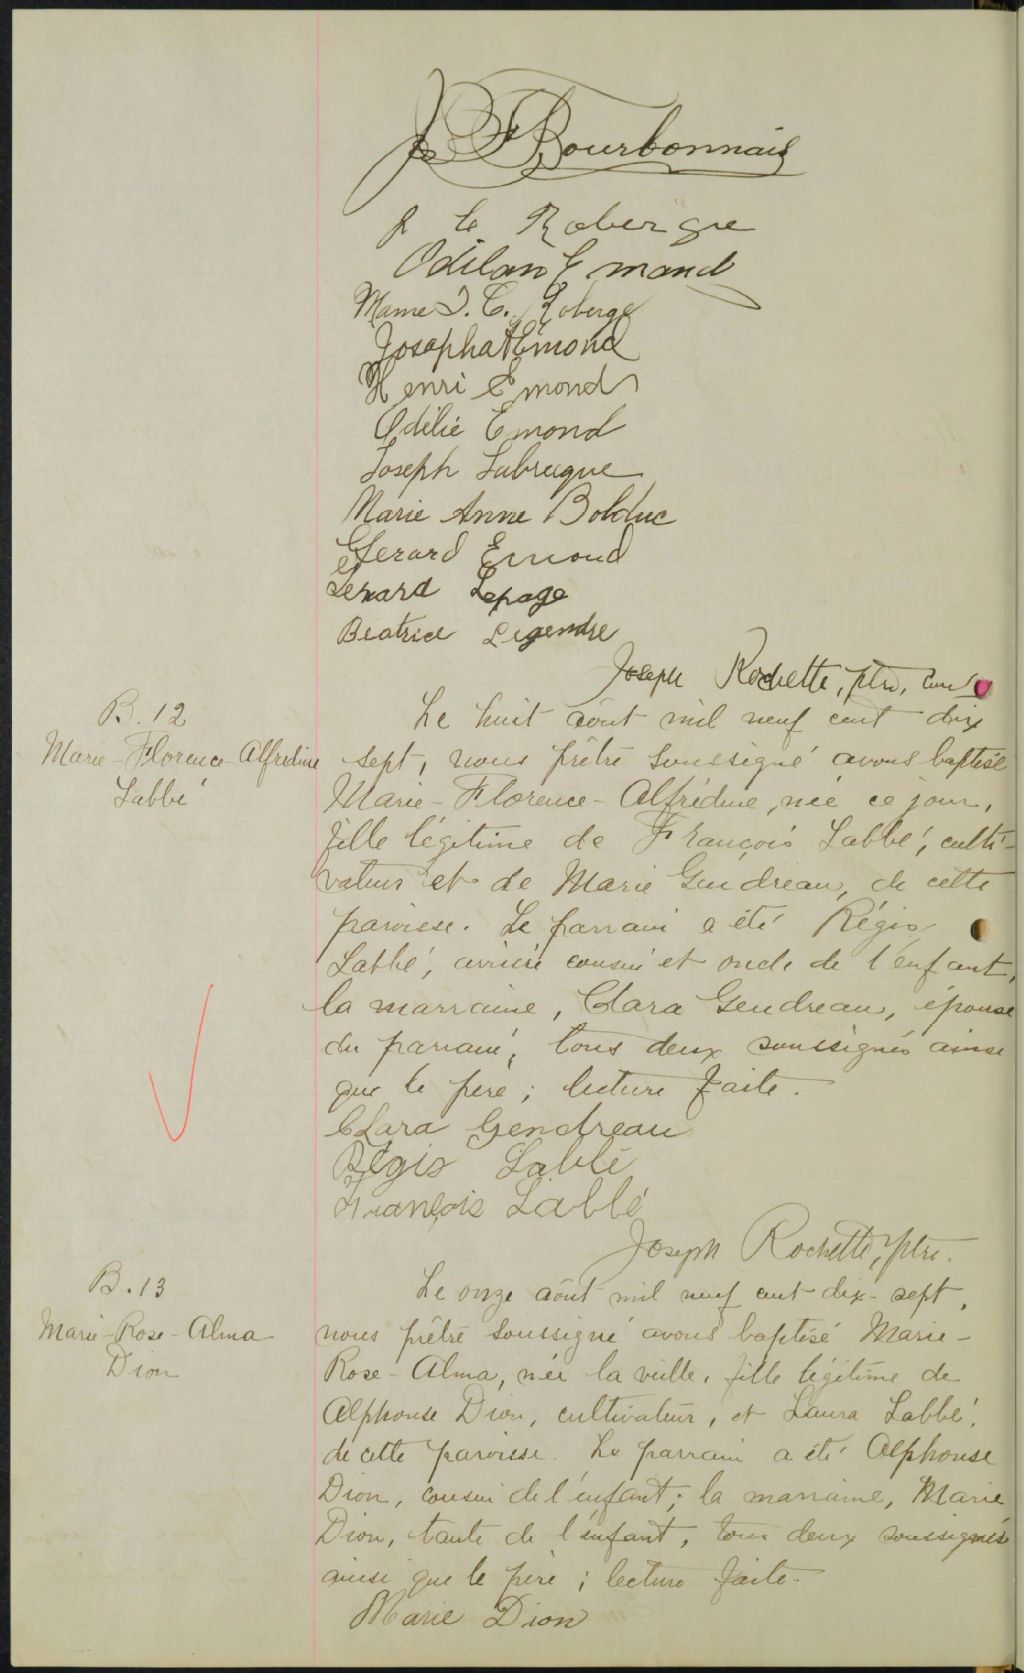 J F Bourbonnais
J E Roberge
Odilon Emond
Mame J. E. Roberge
Josaphat Emond
Henri Emond
Odélie Emond
Joseph Labrecque
Marie Anne Bolduc
Gerard Emond
Lenard Lepage
Beatrice Legendre
Joseph Rochette, ptre, curé
B. 12
Marie-Florence-Alfredine
Labbé
Le huit août mil neuf cent dix
sept, nous prêtre soussigné avons baptisé
Marie-Florence-Alfrédine, née ce jour,
fille légitime de François Labbé, culti-
vateur et de Marie Gendreau, de cette
paroisse. Le parrain a été Régis
Labbé, arrière cousin et oncle de l'enfant,
la marraine, Clara Gendreau, épouse
du parrain, tous deux soussignés ainsi
que le père; lecture faite.
Clara Gendreau
Régis Labbé
François Labbé
Joseph Rochette, ptre.
B. 13
Marie-Rose-Alma
Dion
Le onze août mil neuf cent dix-sept,
nous prêtre soussigné avons baptisé Marie-
Rose-Alma, née la veille, fille légitime de
Alphonse Dion, cultivateur, et Laura Labbé,
de cette paroisse. Le parrain a été Alphonse
Dion, cousin de l'enfant; la marraine, Marie
Dion, tante de l'enfant, tous deux soussignés
ainsi que le père; lecture faite.
Marie Dion